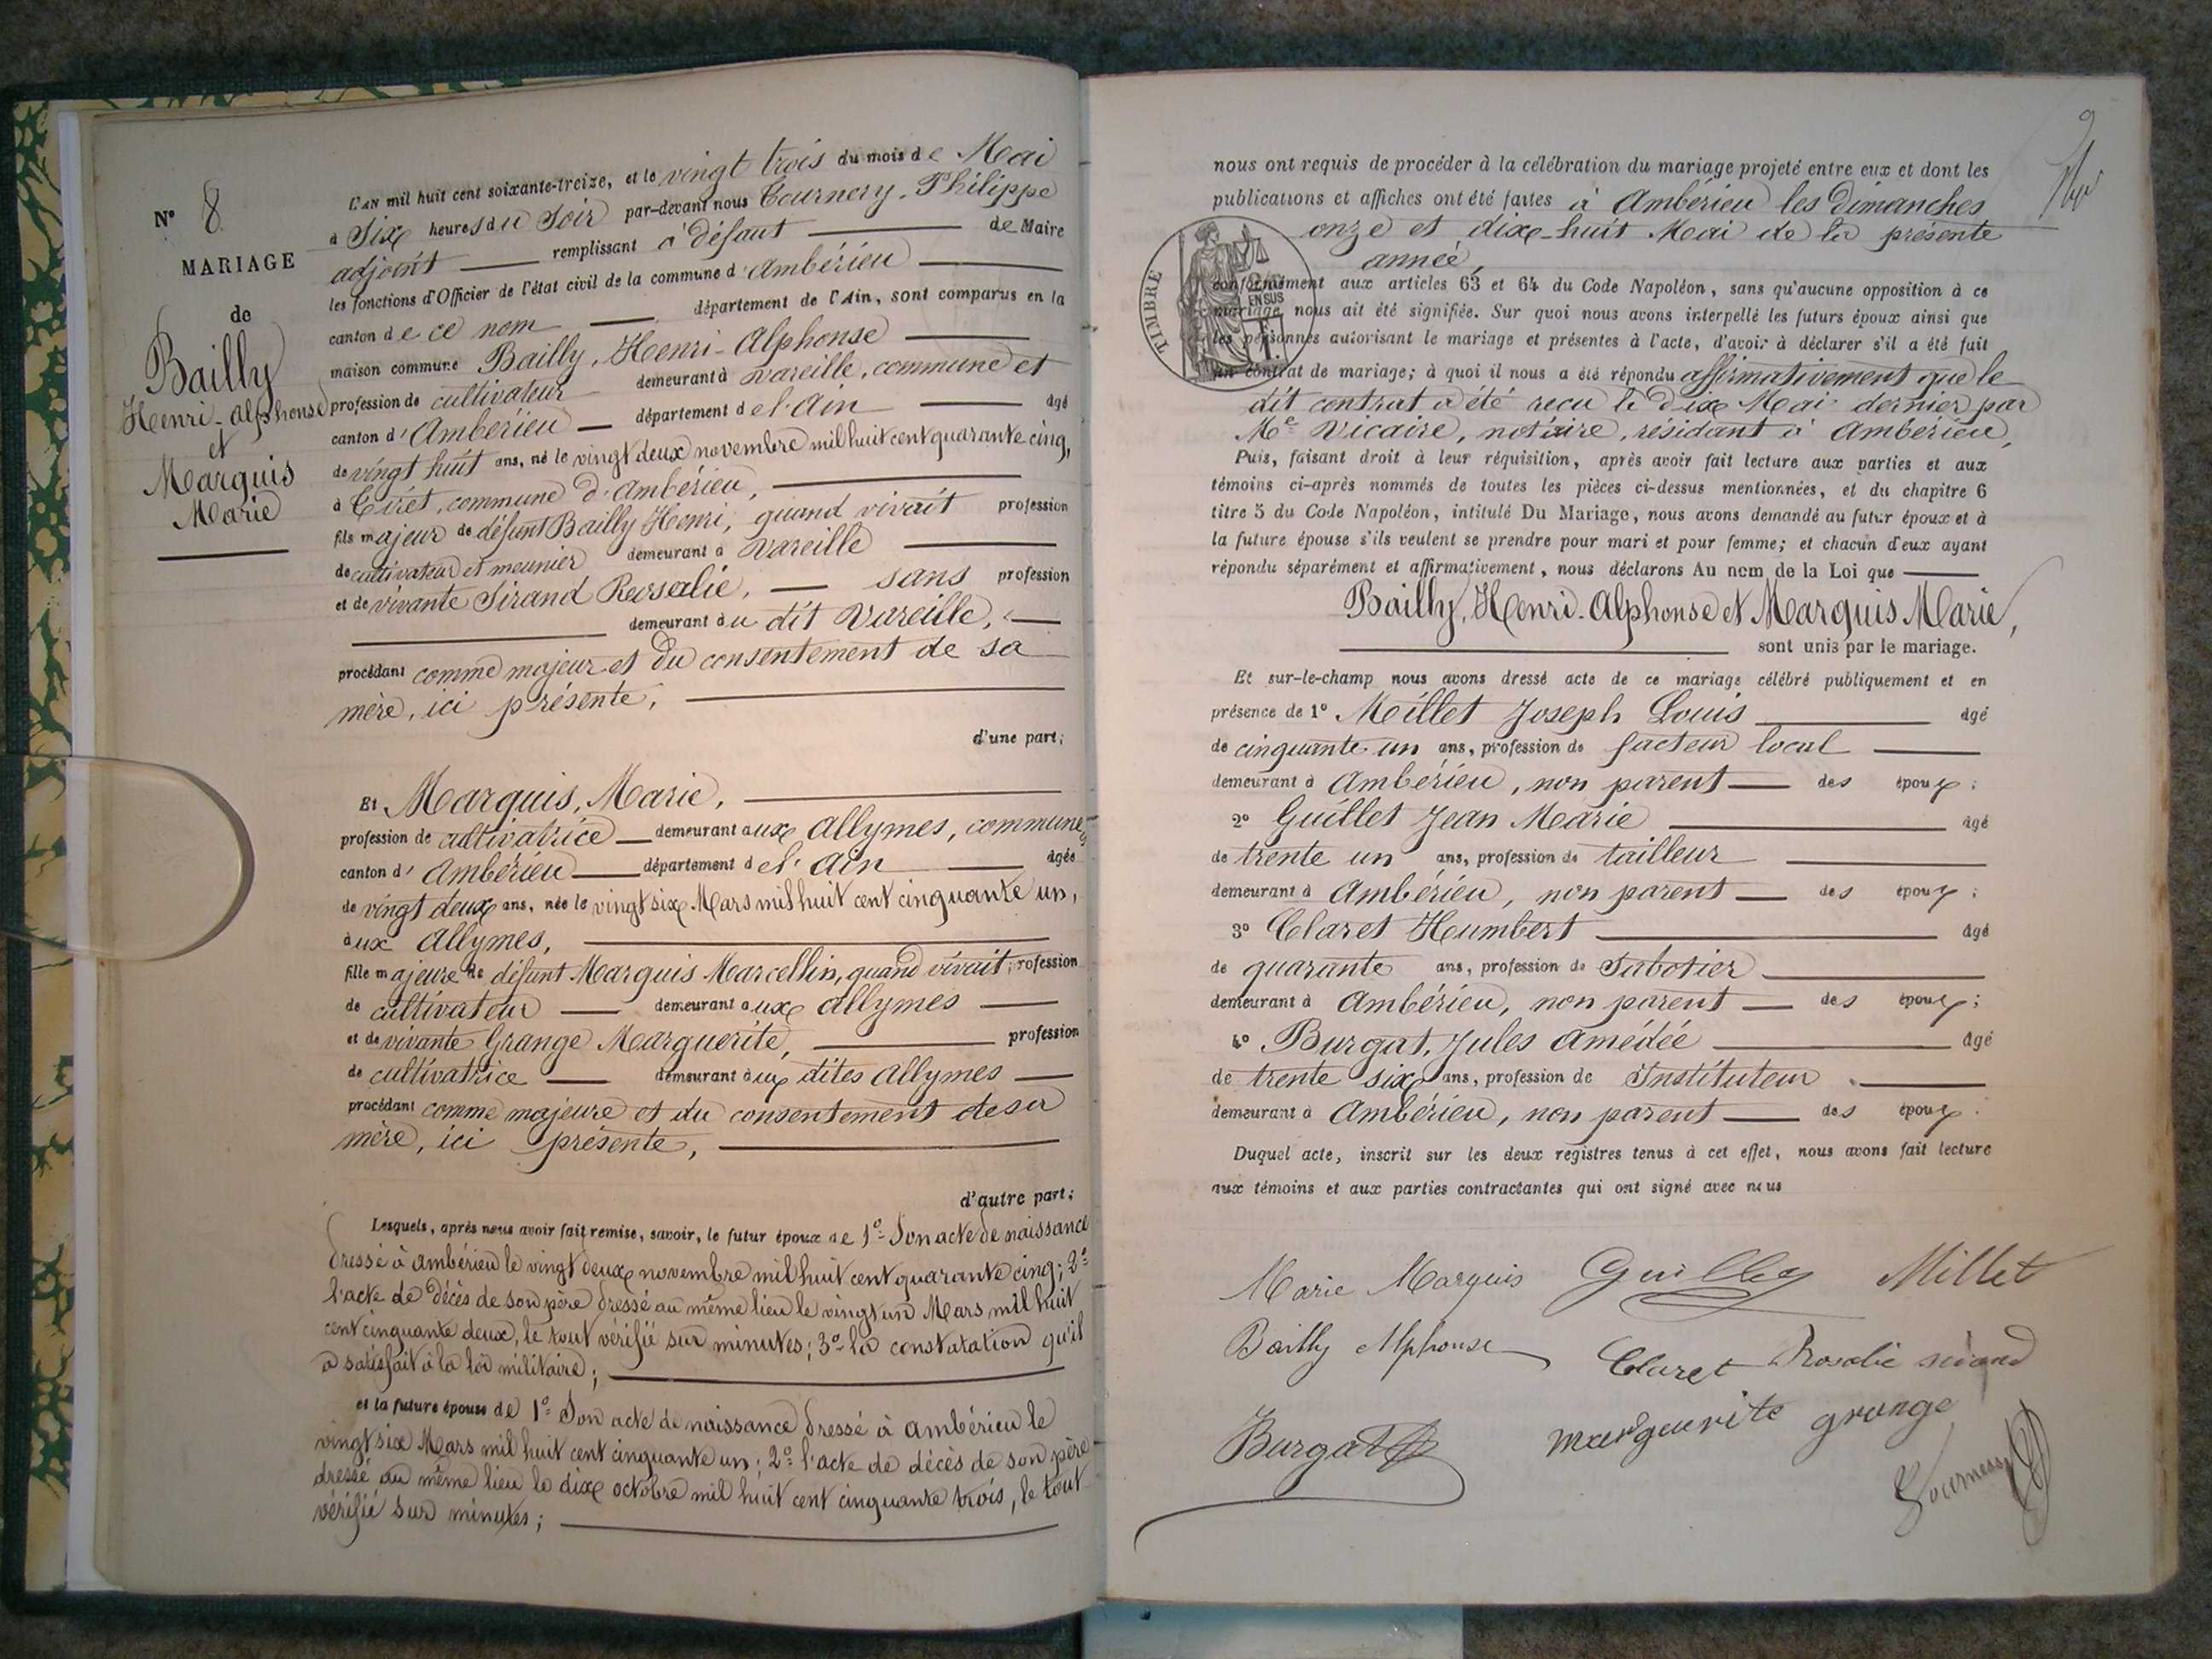 N° 8
MARIAGE
de
Bailly
Henri-Alphonse
et
Marquis
Marie
L'AN mil huit cent soixante-treize, et le vingt trois du mois de Mai
à Six heures du Soir par-devant nous Tournery, Philippe
adjoint remplissant à défaut de Maire
les fonctions d'Officier de l'état civil de la commune d'Ambérieu
canton de ce nom département de l'Ain, sont comparus en la
maison commune Bailly, Henri-Alphonse
profession de cultivateur demeurant à Vareille, commune et
canton d'Ambérieu département de l'Ain âgé
de vingt huit ans, né le vingt deux novembre mil huit cent quarante cinq,
à Tiret, commune d'Ambérieu,
fils majeur de défunt Bailly Henri, quand vivait profession
de cultivateur et meunier demeurant à Vareille
et de vivante Sirand Rosalie, sans profession
demeurant au dit Vareille,
procédant comme majeur et du consentement de sa
mère, ici présente,
d'une part;
Et Marquis, Marie,
profession de cultivatrice demeurant aux Allymes, commune et
canton d'Ambérieu département de l'Ain âgée
de vingt deux ans, née le vingt six Mars mil huit cent cinquante un,
aux Allymes,
fille majeure de défunt Marquis Marcellin, quand vivait, profession
de cultivateur demeurant aux Allymes
et de vivante Grange Marguerite, profession
de cultivatrice demeurant aux dites Allymes
procédant comme majeure et du consentement de sa
mère, ici présente,
d'autre part;
Lesquels, après nous avoir fait remise, savoir, le futur époux de 1° Son acte de naissance
dressé à Ambérieu le vingt deux novembre mil huit cent quarante cinq; 2°
l'acte de décès de son père dressé au même lieu le vingt un Mars mil huit
cent cinquante deux, le tout vérifié sur minutes; 3° la constatation qu'il
a satisfait à la loi militaire;
et la future épouse de 1° Son acte de naissance dressé à Ambérieu le
vingt six Mars mil huit cent cinquante un; 2° l'acte de décès de son père
dressé au même lieu le dix octobre mil huit cent cinquante trois, le tout
vérifié sur minutes;
9
nous ont requis de procéder à la célébration du mariage projeté entre eux et dont les
publications et affiches ont été faites à Ambérieu les Dimanches
onze et dix-huit Mai de la présente
année,
TIMBRE
EN SUS
conformément aux articles 63 et 64 du Code Napoléon, sans qu'aucune opposition à ce
mariage nous ait été signifiée. Sur quoi nous avons interpellé les futurs époux ainsi que
les personnes autorisant le mariage et présentes à l'acte, d'avoir à déclarer s'il a été fait
un contrat de mariage; à quoi il nous a été répondu affirmativement que le
dit contrat a été reçu le dix Mai dernier par
Me Vicaire, notaire, résidant à Ambérieu,
Puis, faisant droit à leur réquisition, après avoir fait lecture aux parties et aux
témoins ci-après nommés de toutes les pièces ci-dessus mentionnées, et du chapitre 6
titre 5 du Code Napoléon, intitulé Du Mariage, nous avons demandé au futur époux et à
la future épouse s'ils veulent se prendre pour mari et pour femme; et chacun d'eux ayant
répondu séparément et affirmativement, nous déclarons Au nom de la Loi que
Bailly, Henri-Alphonse et Marquis Marie,
sont unis par le mariage.
Et sur-le-champ nous avons dressé acte de ce mariage célébré publiquement et en
présence de 1° Millet Joseph Louis âgé
de cinquante un ans, profession de facteur local
demeurant à Ambérieu, non parent des époux;
2° Guillet Jean Marie âgé
de trente un ans, profession de tailleur
demeurant à Ambérieu, non parent des époux;
3° Claret Humbert âgé
de quarante ans, profession de Sabotier
demeurant à Ambérieu, non parent des époux;
4° Burgat, Jules Amédée âgé
de trente six ans, profession de Instituteur
demeurant à Ambérieu, non parent des époux.
Duquel acte, inscrit sur les deux registres tenus à cet effet, nous avons fait lecture
aux témoins et aux parties contractantes qui ont signé avec nous
Marie Marquis Guillet Millet
Bailly Alphonse Claret Rosalie sirand
Burgat marguerite grange